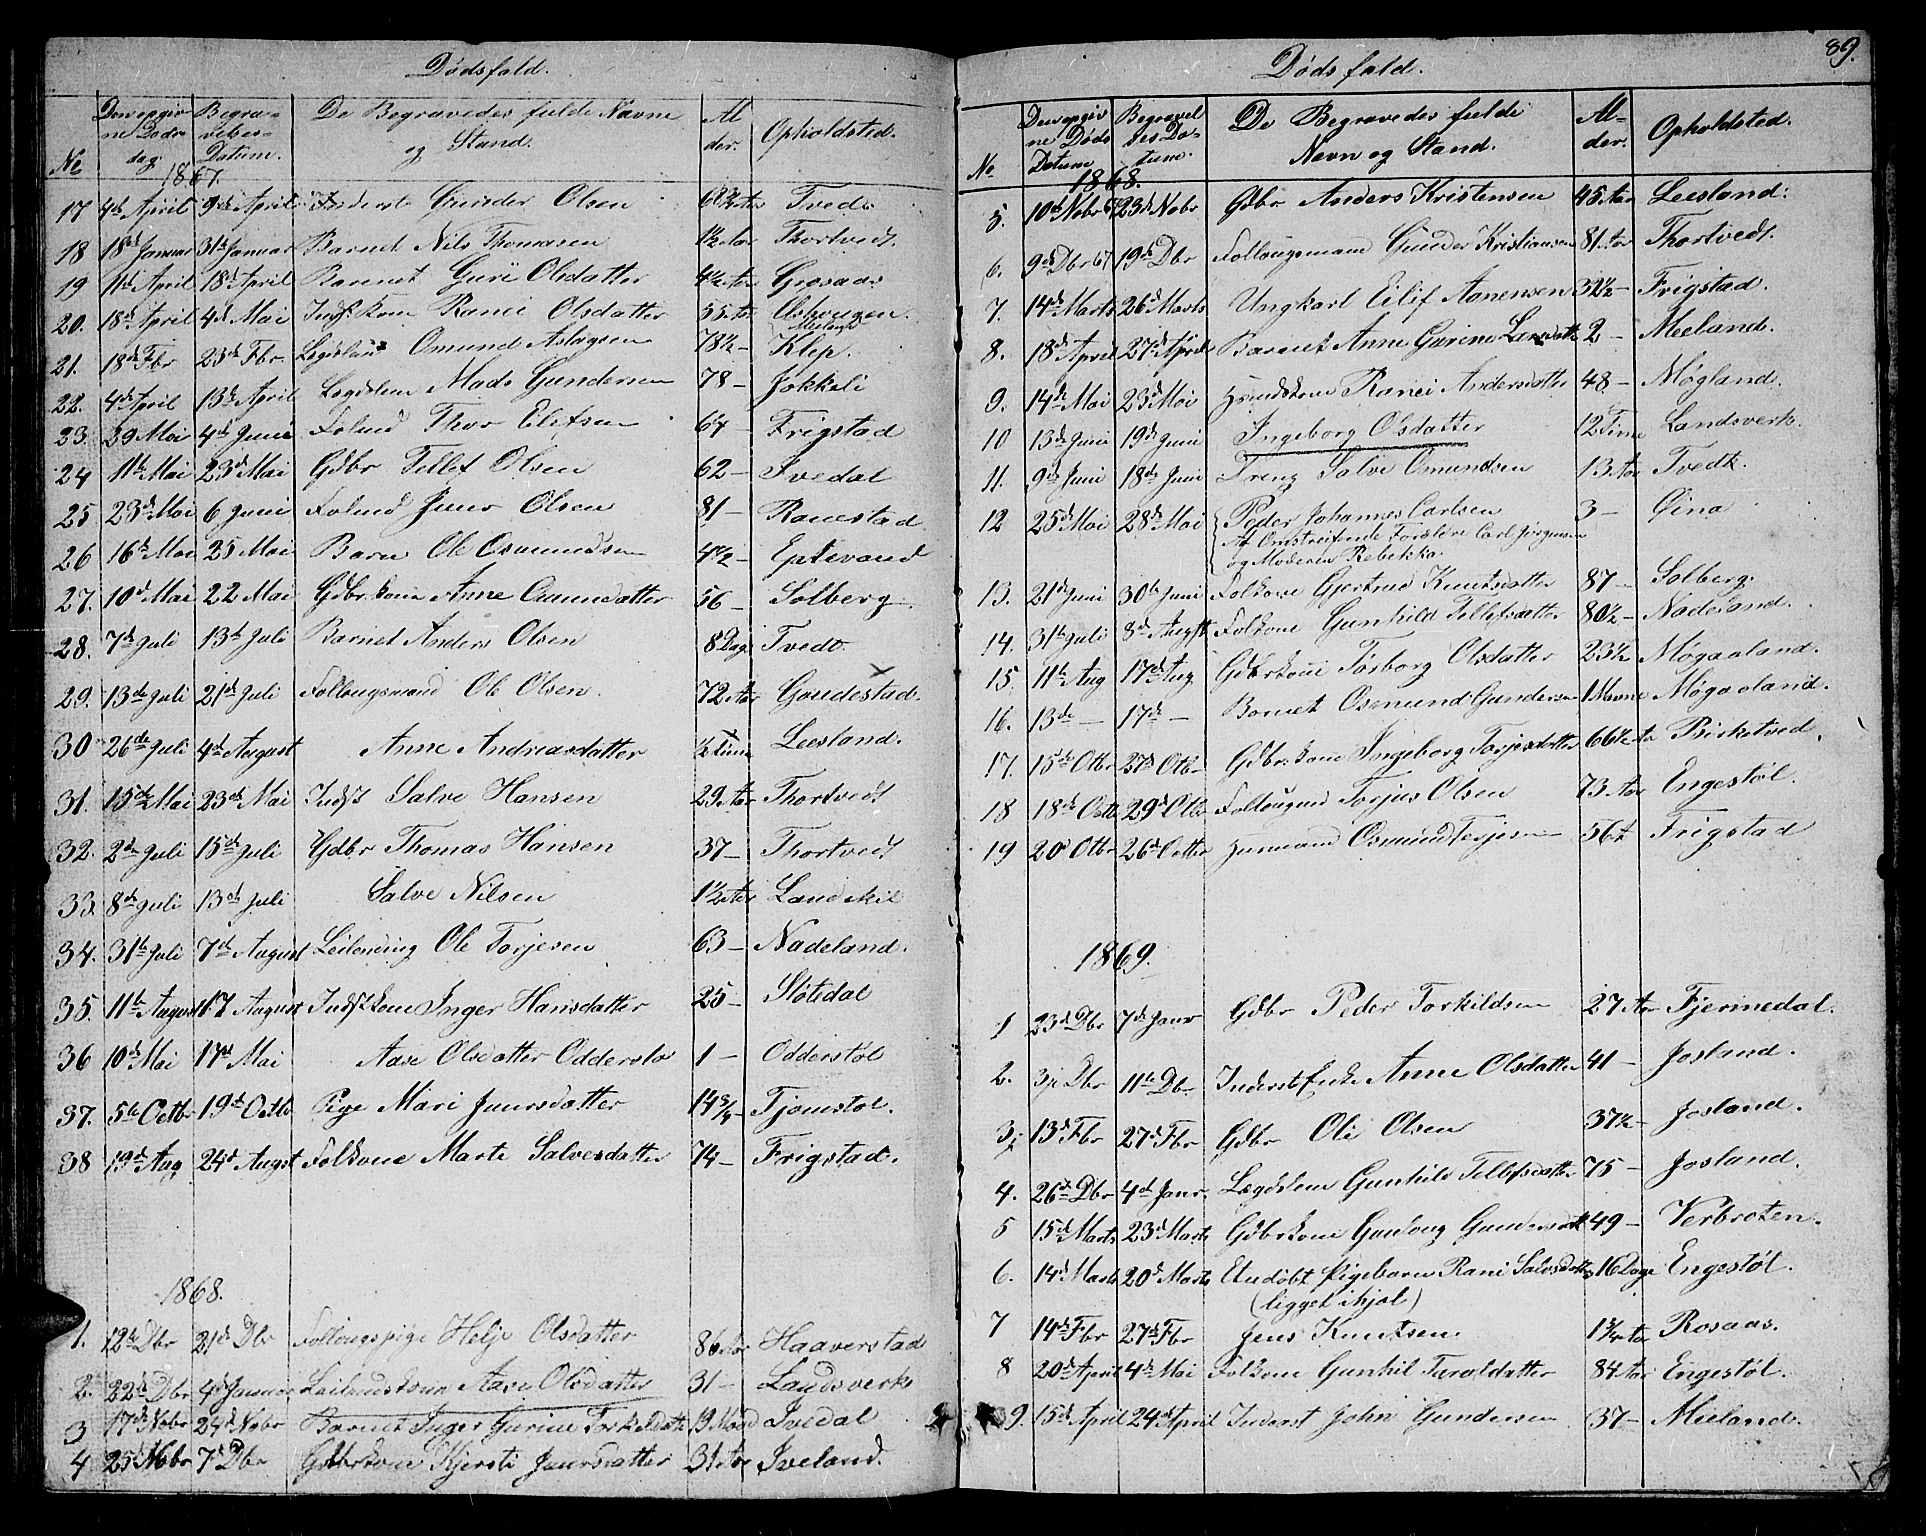 Dödsfald.
No
Den opgivne Döds dag.
Begravelses Datum.
De Begravedes fulde Navne og Stand.
Alder.
Opholdsted.
1867.
17 4de April 9de April Inderst Gunder Olsen Tvedt
18 18de Januar 31te Januar Barnet Nils Thomasen 1½ Aar Thortvedt.
19 11te April 18de April Barnet Guri Olsdatter 4½ Aar Grosaas
20. 18de April 4de Mai Indst. kone Ranei Olsdatter 55 Aar
21. 18de Fbr 23de Fbr. Omund Aslagsen 78½ – Klep.
22. 4de April 13de April Lægdslem Mads Gundersen 78 – Jokkeli
23. 29 Mai 4de Juni Folmd Thor Elefsen 64 – Frigstad
24 11te Mai 23de Mai Gdbr Tellef Olsen 62 – Ivedal
25 23de Mai 6 Juni Folmd Juur Olsen 81 – Ranestad
26 16de Mai 25 Mai Barn Ole Osmundsen 4½ – Eptevand
27. 10de Mai 22 Mai Gdbr. kone Anne Omundsdatter 56 – Solberg.
28. 7de Juli 13de Juli Barnet Anders Olsen 8 Dag Tvedt
29. 13de Juli 21de Juli Follougsmand Ole Olsen. 72 Aar Gaudestad.
30. 26de Juli 4de August Anne Andreasdatter ½ Time Leesland.
31. 15de Mai 23de Mai Indst Salve Hansen 29 Aar Thortvedt
32. 2de Juli 15de Juli Gdbr Thomas Hansen 37 – Thortvedt
33. 8de Juli 13de Juli Salve Nilsen 1½ Aar Landskil
34. 31te Juli 7de August Leilending Ole Torjesen 63 – Nadeland.
35. 11te August 17 August Indst kone Inger Hansdatter 25 – Støtedal
36 10de Mai 17de Mai Aase Olsdatter Odderstø 1 – Odderstøl
37. 5te Octbr 19de Octbr Pige Mari Juursdatter 14¾ – Tjomstøl.
38 19de Aug 24de Augst Folkone Marte Salvesdatter 74 – Frigstad.
1868.
1. 12te Dbr 21de Dbr Follougspige Helje Olsdatter 86 Aar Haaverstad
2. 22de Dbr 4de Januar Leilendskone Aase Olsdatter 31 – Landsverk
3 17de Nobr 24de Nobr Barnet Inger Gurine Torkeldsdatt 19 Maand Ivedal
4 25de Nobr 7de Dbr Gdbrkone Kjersti Juursdatter 31 Aar Iveland.
89.
Döds fald.
No
Den opgivne Döds Datum
Begravelses Datum.
De Begravedes fulde Navn og Stand.
Alder.
Opholdsted.
1868.
5. 10de Nobr 67 23de Nobr Gdbr Anders Kristensen 45 Aar Leesland.
6. 9de Dbr 67 19de Dbr Follougsmand Gunder Kristiansen 81 Aar Thortvedt.
7. 14de Marts 26de Marts Ungkarl Eilif Aanensen 32½ – Frigstad.
8. 18de April 27de April Barnet Anne Gurine Larsdatt 2 – Mieland.
9. 14de Mai 23de Mai Huuskone Ranei Andersdatter 48 – Møgland.
10 13de Juni 19de Juni Ingeborg Olsdatter 12 Time Landsverk.
11. 9de Juni 18de Juni Dreng Salve Omundsen 13 Aar Tvedt.
12 25de Mai 28de Mai Peder Johannes Carlsen 3 – Øina
Af Omstreifende Forældre Carl Jörgensen
og Moderen Rebekka.
13. 21de Juni 30te Juni Folkone Gjertrud Knutsdatter 87 – Solberg.
14. 31te Juli 8de Augst Folkone Gunhild Tellefsdatter 80½ – Nadeland.
15. 11te Aug 17de Aug Gdbrkone Torborg Olsdatter 23½ Møgaaland.
16. 13de – 17de – Barnet Osmund Gundersen Møgaaland.
17. 15de Otbr 27de Otbr Gdbr. kone Ingeborg Torjesdatter 66½ Aar Birketved.
18 18de Octbr 29de Otbr Follougmd Torjus Olsen 73 Aar Engestøl.
19 20de Otbr 26de Octbr Huusmand Osmund Terjesen 56 Frigstad
1869.
1 23de Dbr 7de Janr Gdbr Peder Torkildsen 27 Aar Fjermedal.
2. 3de Dbr 11te Dbr. Inderst Enke Anne Olsdatter 41 – Josland.
3. 13de Fbr 27de Fbr Gdbr Ole Olsen 37½ – Josland.
4. 26de Dbr 4de Janr. Lægdslem Gunhild Tellefsdatter 75 – Josland.
5 15de Marts 23de Marts Gdbrkone Gunvoug Gundersdatt 49 – Verbroten.
6. 14de Marts 20de Marts Et udöbt Pigebarn Rani Salvesdatter 16 Dage Engestøl.
(ligget ihjel)
7 14de Fbr 27de Fbr Jens Knutsen. 1¾ Aar Rosaas.
8 20de April 4de Mai Folkone Gunhil Taraldsdatter 84 Aar Engestøl.
9. 15de April 24de April Inderst John Gundersen 37 – Mieland.